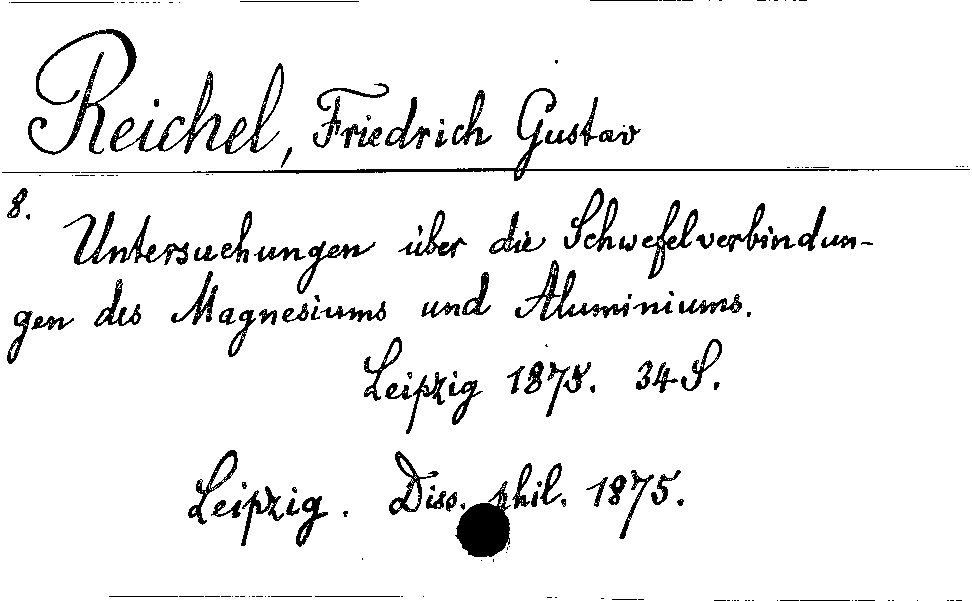 Reichel, Friedrich Gustav
8.
Untersuchungen über die Schwefelverbindun-
gen des Magnesiums und Aluminiums.
Leipzig 1875. 34 S.
Leipzig. Diss. phil. 1875.